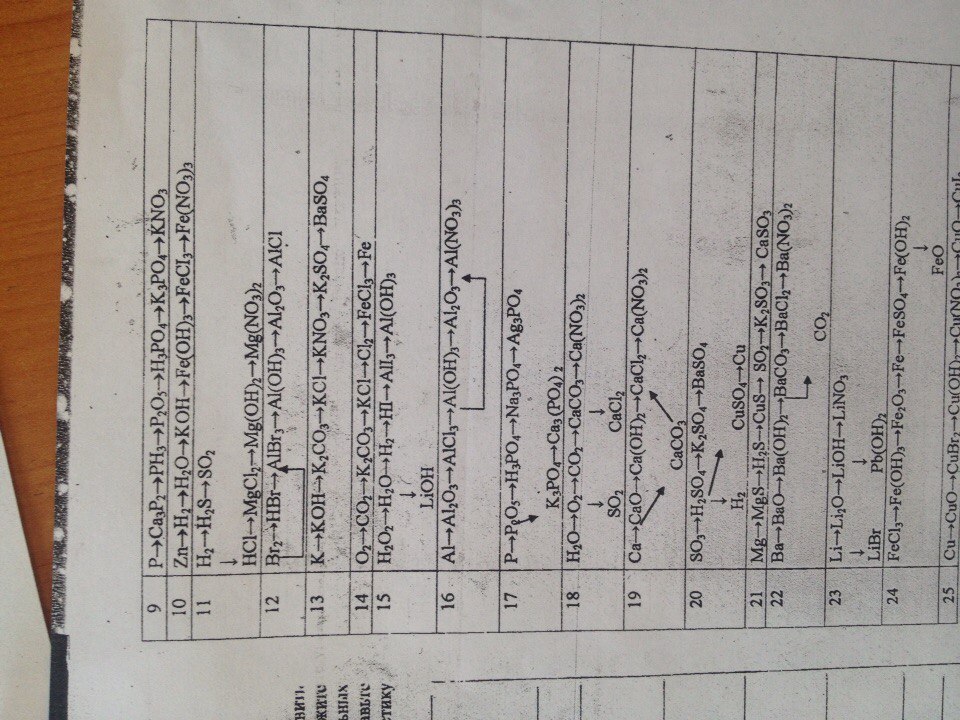 9 P→Ca₃P₂→PH₃→P₂O₅→H₃PO₄→K₃PO₄→KNO₃
10 Zn→H₂→H₂O→KOH→Fe(OH)₃→FeCl₃→Fe(NO₃)₃
11 H₂→H₂S→SO₂
↓
HCl→MgCl₂→Mg(OH)₂→Mg(NO₃)₂
12 Br₂→HBr→AlBr₃→Al(OH)₃→Al₂O₃→AlCl
13 K→KOH→K₂CO₃→KCl→KNO₃→K₂SO₄→BaSO₄
14 O₂→CO₂→K₂CO₃→KCl→Cl₂→FeCl₃→Fe
15 H₂O₂→H₂O→H₂→HI→AlI₃→Al(OH)₃
↓
LiOH
16 Al→Al₂O₃→AlCl₃→Al(OH)₃→Al₂O₃→Al(NO₃)₃
17 P→P₂O₅→H₃PO₄→Na₃PO₄→Ag₃PO₄
K₃PO₄→Ca₃(PO₄)₂
18 H₂O→O₂→CO₂→CaCO₃→Ca(NO₃)₂
↓ ↓
SO₂ CaCl₂
19 Ca→CaO→Ca(OH)₂→CaCl₂→Ca(NO₃)₂
CaCO₃
20 SO₃→H₂SO₄→K₂SO₄→BaSO₄
↓
H₂ CuSO₄→Cu
21 Mg→MgS→H₂S→CuS→ SO₂→K₂SO₃→ CaSO₃
22 Ba→BaO→Ba(OH)₂→BaCO₃→BaCl₂→Ba(NO₃)₂
CO₂
23 Li→Li₂O→LiOH→LiNO₃
↓ ↓
LiBr Pb(OH)₂
24 FeCl₃→Fe(OH)₃→Fe₂O₃→Fe→FeSO₄→Fe(OH)₂
↓
FeO
25 Cu→CuO→CuBr₂→Cu(OH)₂→Cu(NO₃)₂→CuO→CuI₂
ьных
етику